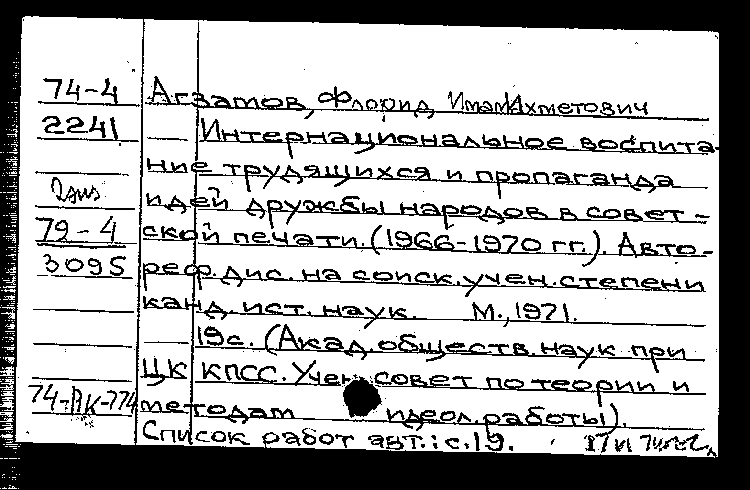 74-4 Агзамов, Флорид Имамахметович
2241 Интернациональное воспита-
ние трудящихся и пропаганда
идей дружбы народов в совет-
79-4 ской печати. (1966-1970 гг.). Авто-
3095 реф. дис. на соиск. учен. степени
канд. ист. наук. М., 1971.
19с. (Акад. обществ. наук при
ЦК КПСС. Учен. совет по теории и
74-ВК-774 методам идеол. работы).
Список работ авт.: с. 19.